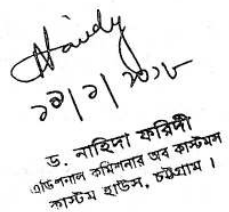 ১৭/১/২০১৮
ড. নাহিদা ফরিদী
এডিশনাল কমিশনার অব কাস্টমস
কাস্টম হাউস, চট্টগ্রাম।